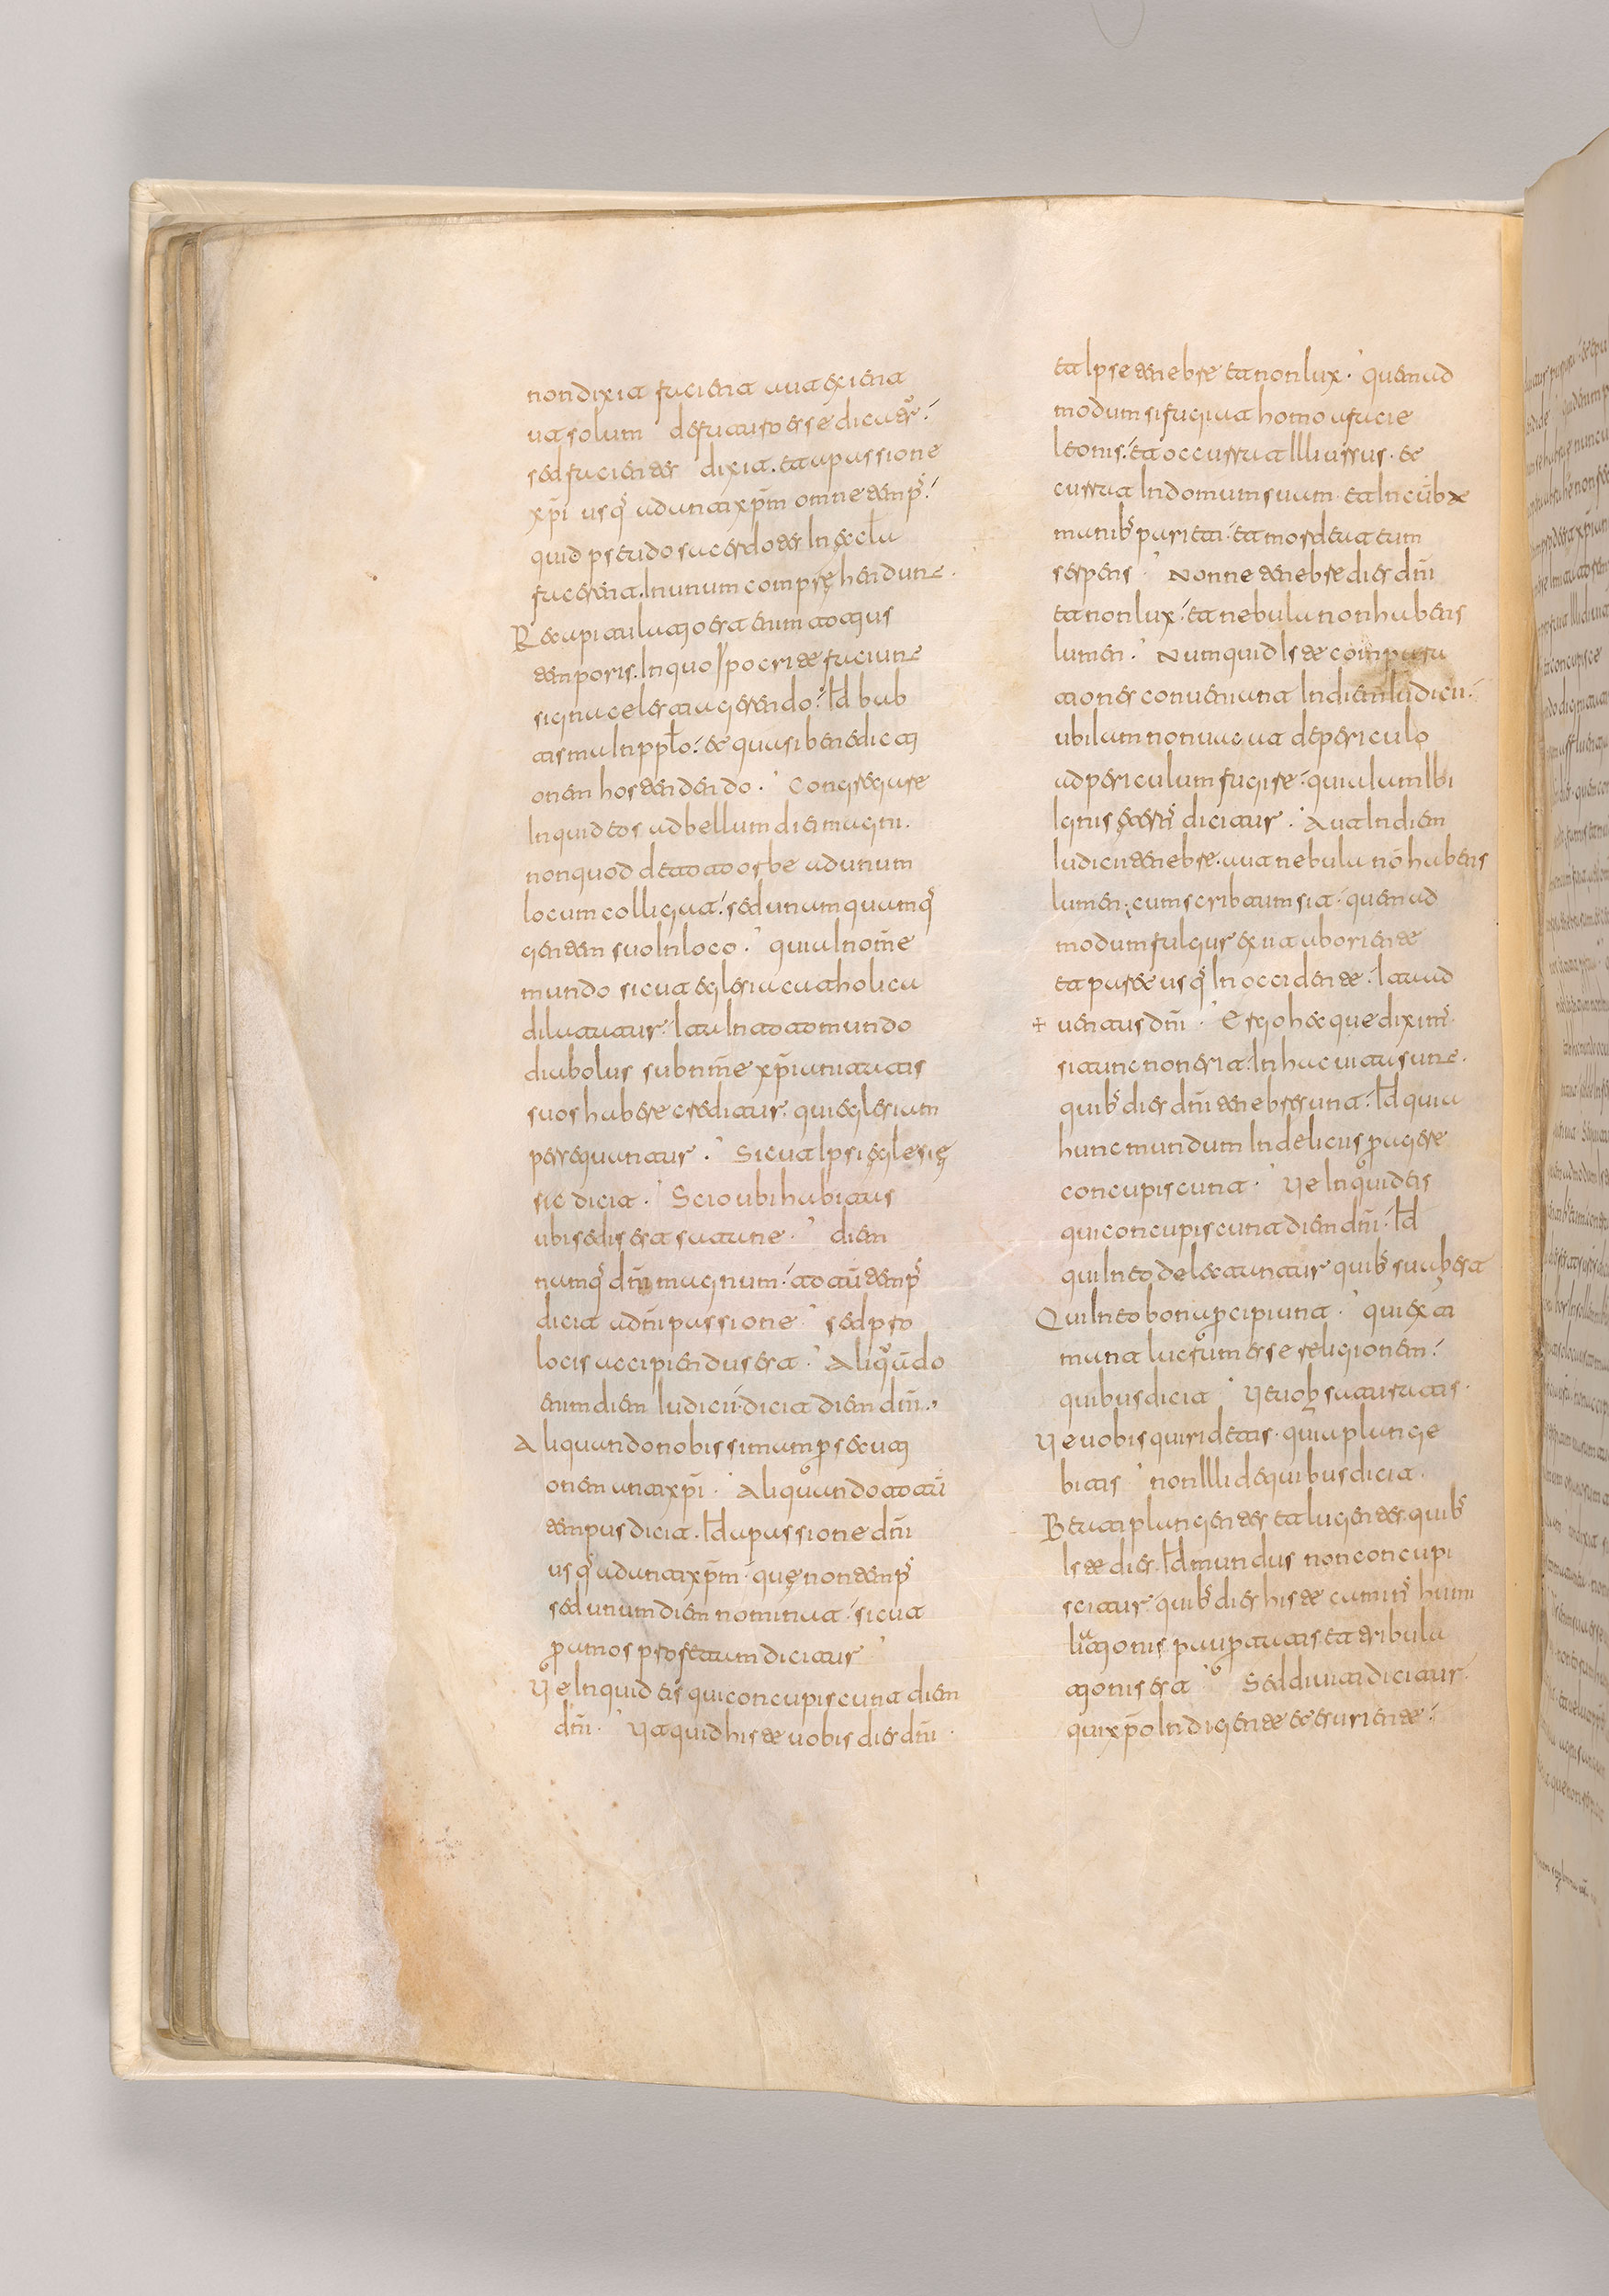 non dixit faciet aut exiet
ut solum de futuro esse dicatr̄.
sed facientes dixit. et a passione
xp̄i usq; ad antixp̄m omne temps̄.
quid pseudosacerdotes in eccła
facerent. in unum comprehendunt.
Recapitulatio est enim totius
temporis. in quo ypocrite faciunt
signa celestia gerendo. id̄ bab
tismū in ppło. et quasi benedicti
onem hostendendo. Congregare
inquid eos ad bellum diei magni.
non quod de toto orbe ad unum
locum colligat. sed unamquamq;
gentem suo in loco. quia in om̄e
mundo sicut eglesia catholica
dilatatur. ita in toto mundo
diabolus sub nm̄e xp̄ianitatis
suos habere creditur. qui eglesiam
persequantur. Sicut ipsi ęglesię
sic dicit. Scio ubi habitas
ubi sedis est satane. diem
namq; dn̄i magnum. totū temps̄
dicit a dn̄i passione sed pro
locis accipiendus est. Aliquando
enim diem iudicii. dicit diem dn̄i.
Aliquando nobissimam p̄secuti
onem antixp̄i. Aliquando totū
tempus dicit. id̄ a passione dn̄i
usq; ad antixp̄m. quę non temps̄
sed unum diem nominat. sicut
p̄ amos profetam dicitur
Ve inquid eis qui concupiscunt diem
dn̄i. Ut quid histe uobis dies dn̄i.
et ipse tenebre et non lux. quemad
modum si fugiat homo a facie
leonis. et occurrat illi ursus. et
currat in domum suam. et incūbat
manibs̄ parieti. et mordeat eum
serpens. Nonne tenebre dies dn̄i
et non lux. et nebula non habens
lumen. Numquid iste computa
tiones conueniunt in diem iudicii.
ubi iam non uacat de periculo
ad periculum fugire. quia iam ibi
ignis ęterns̄ dicitur. Aut in diem
iudicii tenebre. aut nebula nō habens
lumen. cum scribtum sit. quemad
modum fulgur exiit ab oriente
et paret usq; in occidente. ita et ad
uentus dn̄i. Ergo hęc que dixims̄.
si tunc non erit. in hac uita sunt.
quibs̄ dies dn̄i tenebre erunt. id̄ quia
hunc mundum in delicias p̄agere
concupiscunt. Ve inquid eis
qui concupiscunt diem dn̄i. id̄
qui in eo delectantur quibs̄ suabę est
Qui in eo bona p̄cipiunt. qui exti
mant lucrum esse religionem.
quibus dicit Ve uobs̄ saturatis.
Ve uobis qui ridetis. quia plange
bitis non illi de quibus dicit.
Beati plangentes et lugentes. quibs̄
iste dies. id̄ mundus non concupi
scitur. quibs̄ dies histe tantm̄ humi
liationis. paup̄tatis. et tribula
tionis est. Sed diuiti dicitur.
qui xp̄o indigente et esuriente.